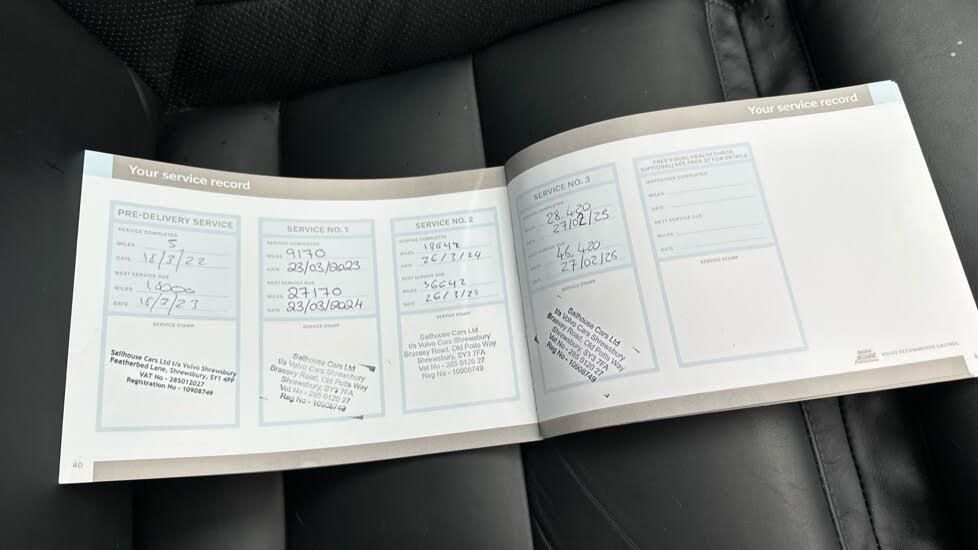 Your service record
PRE-DELIVERY SERVICE
SERVICE COMPLETED
MILES 5
DATE 18/3/22
NEXT SERVICE DUE
MILES 18000
DATE
SERVICE STAMP
Sallhouse Cars Ltd t/a Volvo Shrewsbury
Featherbed Lane, Shrewsbury, SY1 4PP
VAT No - 285012027
Registration No - 10908749
SERVICE NO. 1
SERVICE COMPLETED
MILES 9170
DATE 23/03/2023
NEXT SERVICE DUE
MILES 27170
DATE 23/03/2024
SERVICE STAMP
Sallhouse Cars Ltd
t/a Volvo Cars Shrewsbury
Brassey Road, Old Potts Way
Shrewsbury, SY3 7FA
Vat No - 285 0120 27
Reg No - 10908749
SERVICE NO. 2
SERVICE COMPLETED
MILES 18642
DATE 26/3/24
NEXT SERVICE DUE
MILES 36642
DATE 26/3/25
SERVICE STAMP
Sallhouse Cars Ltd
t/a Volvo Cars Shrewsbury
Brassey Road, Old Potts Way
Shrewsbury, SY3 7FA
Vat No - 285 0120 27
Reg No - 10908749
40
Your service record
SERVICE NO. 3
SERVICE COMPLETED
MILES 28,420
DATE 27/02/25
NEXT SERVICE DUE
MILES 46,420
DATE 27/02/26
SERVICE STAMP
Sallhouse Cars Ltd
t/a Volvo Cars Shrewsbury
Brassey Road, Old Potts Way
Shrewsbury, SY3 7FA
Vat No - 285 0120 27
Reg No - 10908749
FREE VISUAL HEALTH CHECK
(OPTIONAL) SEE PAGE 37 FOR DETAILS
INSPECTION COMPLETED
MILES
DATE
NEXT SERVICE DUE
MILES
DATE
SERVICE STAMP
VOLVO RECOMMENDS CASTROL